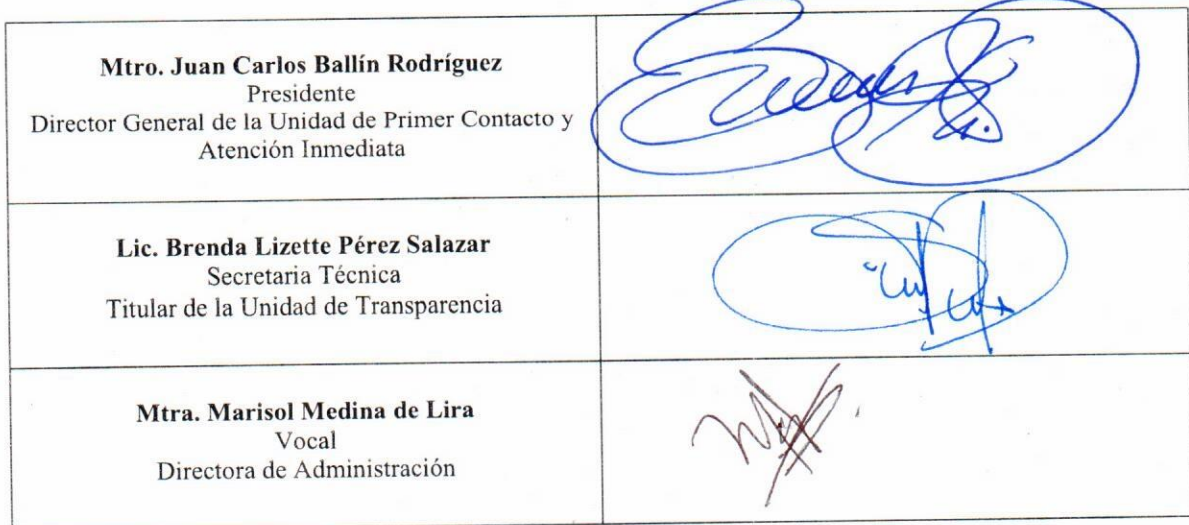 Mtro. Juan Carlos Ballín Rodríguez
Presidente
Director General de la Unidad de Primer Contacto y
Atención Inmediata
Lic. Brenda Lizette Pérez Salazar
Secretaria Técnica
Titular de la Unidad de Transparencia
Mtra. Marisol Medina de Lira
Vocal
Directora de Administración